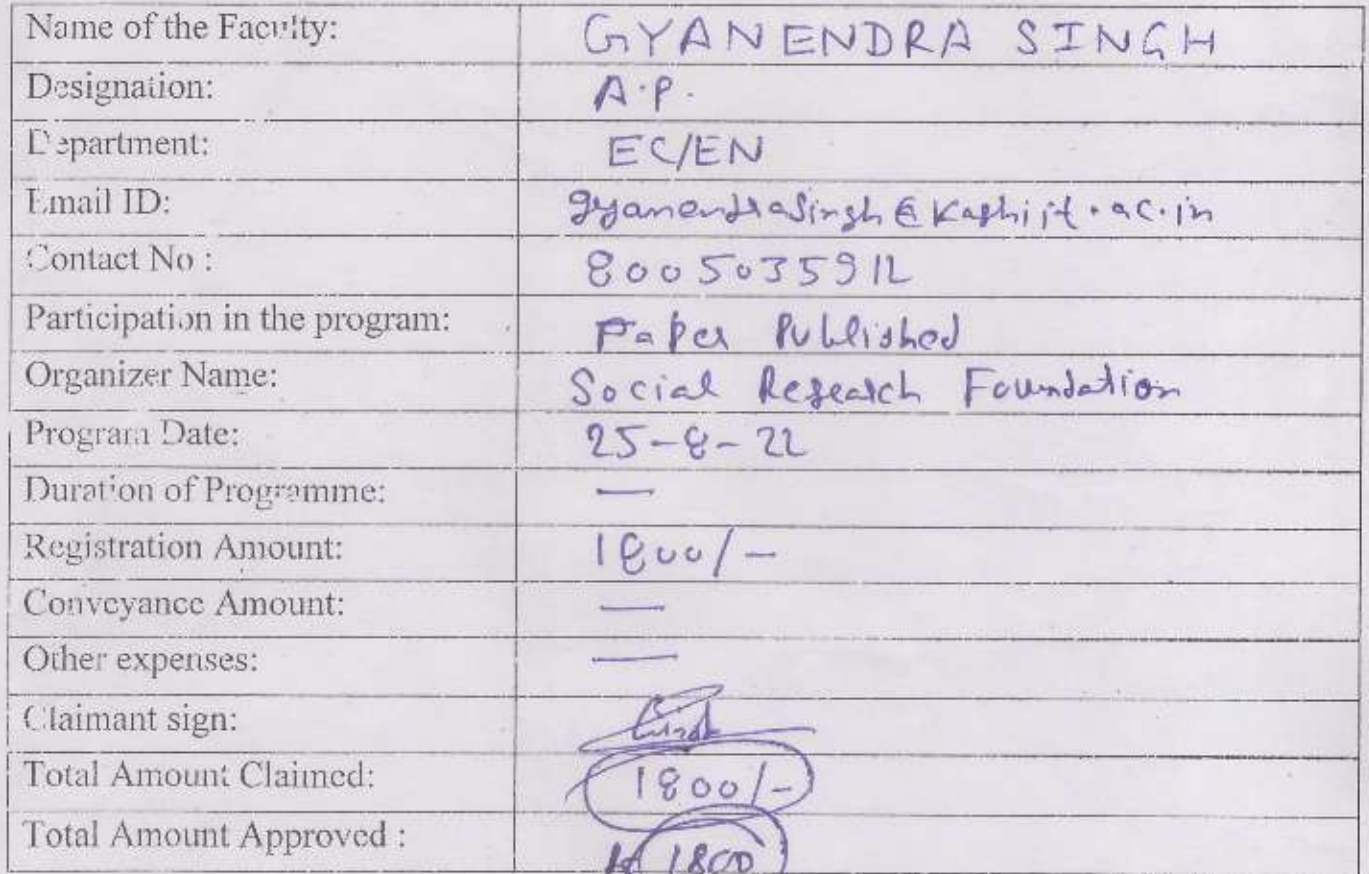 Name of the Faculty: GYANENDRA SINGH
Designation: A.P.
Department: EC/EN
Email ID: gyanendrasingh@kashiit.ac.in
Contact No : 8005035912
Participation in the program: Paper Published
Organizer Name: Social Research Foundation
Program Date: 25-8-22
Duration of Programme: —
Registration Amount: 1800/-
Conveyance Amount: —
Other expenses: —
Claimant sign:
Total Amount Claimed: 1800/-
Total Amount Approved : 1800